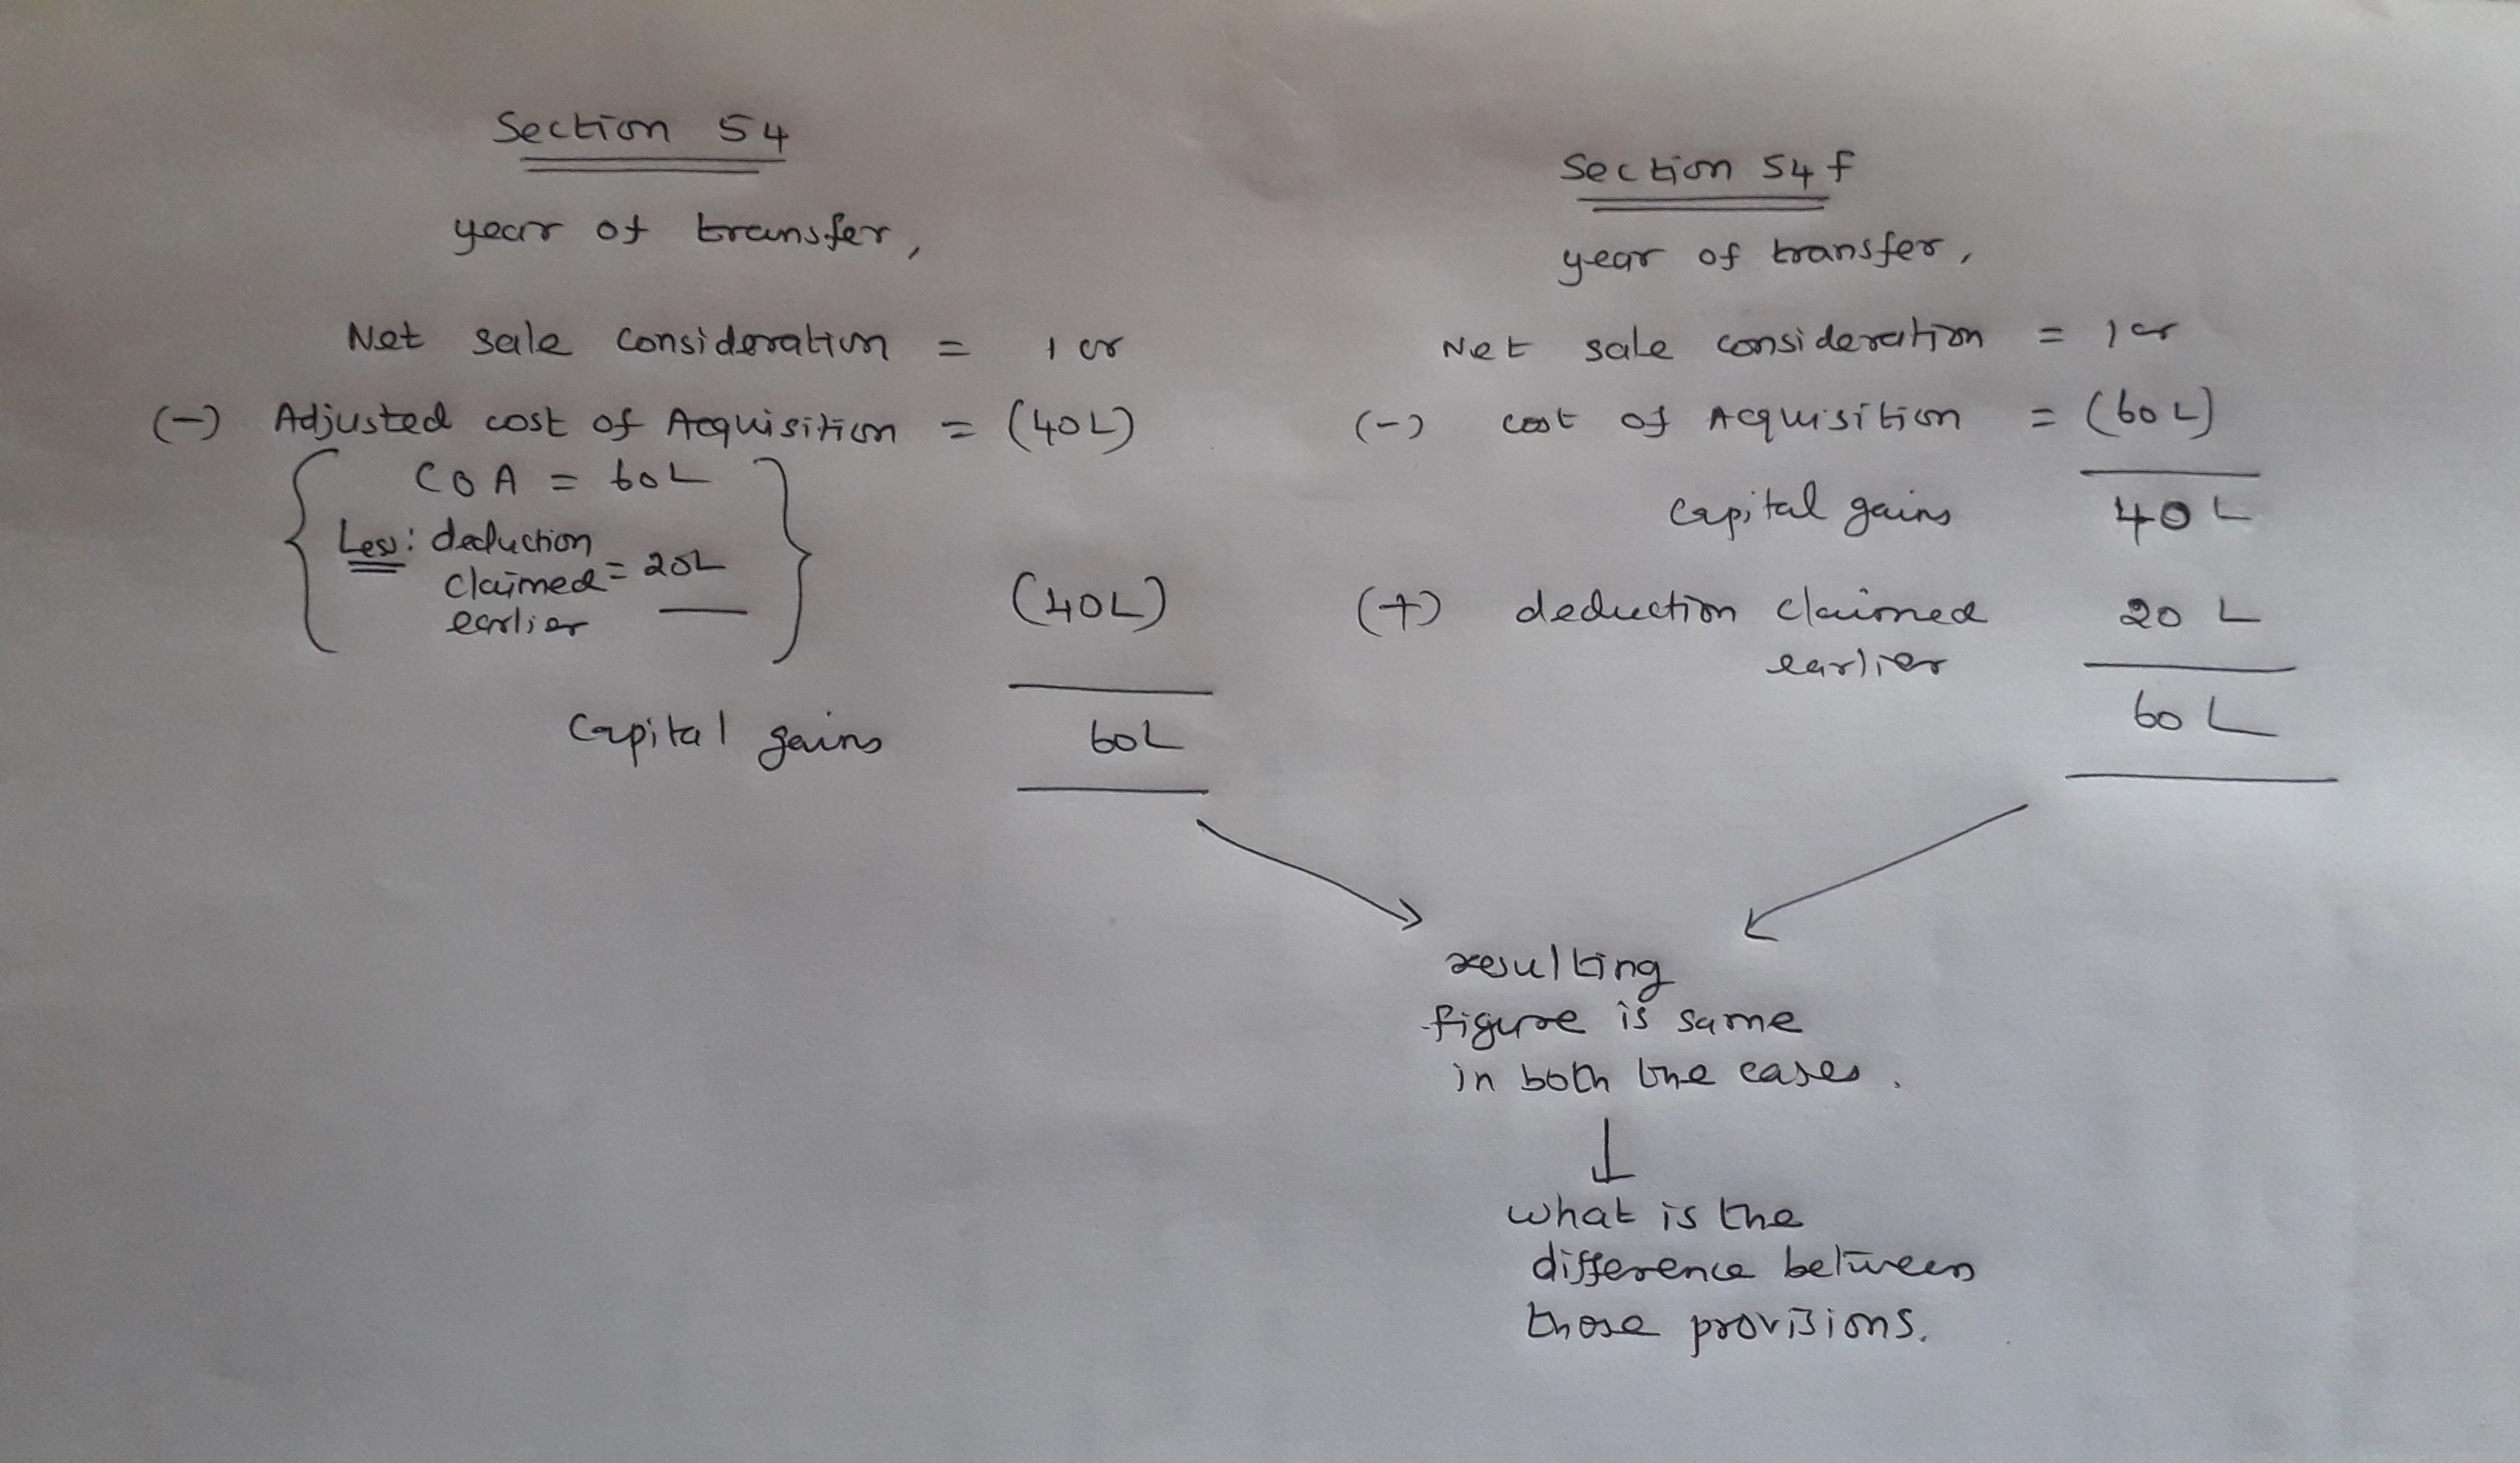 Section 54
year of transfer,
Net sale consideration = 1 cr
(-) Adjusted cost of Acquisition = (40L)
COA = 60L
Less: deduction
claimed = 20L
earlier
(40L)
Capital gains 60L
Section 54 f
year of transfer,
Net sale consideration = 1 cr
(-) cost of Acquisition = (60 L)
Capital gains 40 L
(+) deduction claimed 20 L
earlier
60 L
resulting
figure is same
in both the cases.
what is the
difference between
those provisions.